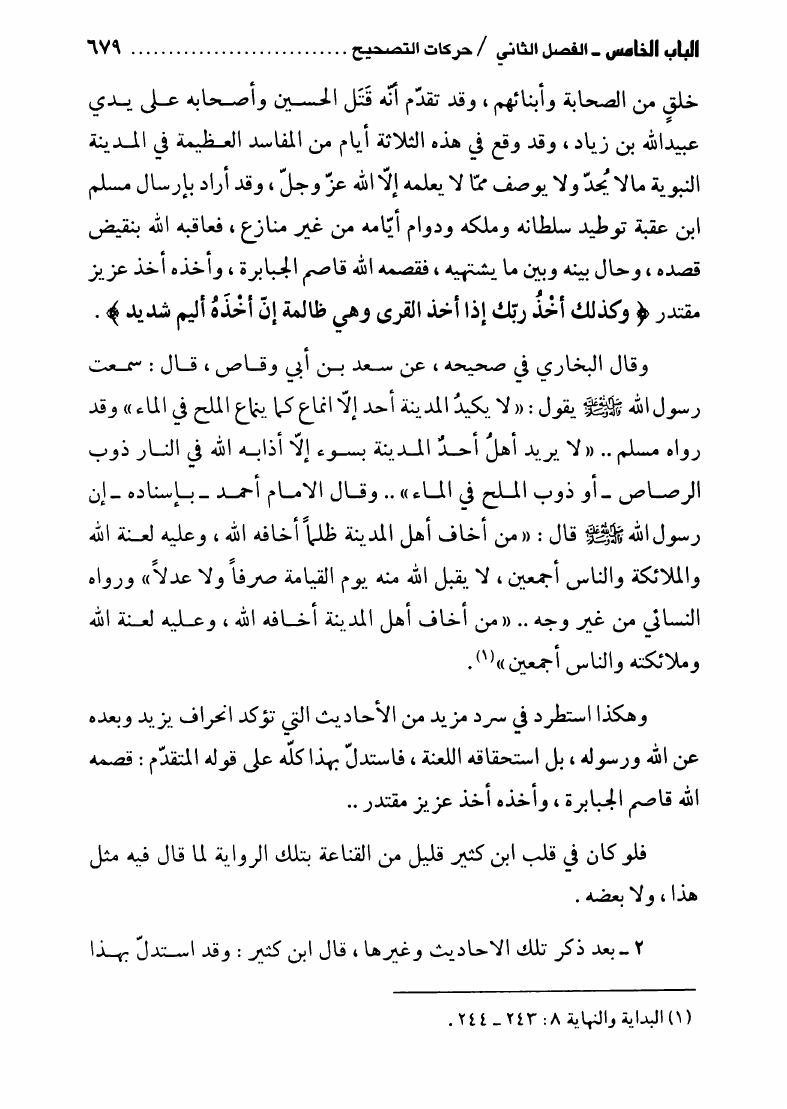 الباب الخامس ـ الفصل الثاني / حركات التصحيح ............................. ٦٧٩
خلقٍ من الصحابة وأبنائهم ، وقد تقدّم أنّه قَتَل الحسين وأصحابه على يدي
عبيدالله بن زياد ، وقد وقع في هذه الثلاثة أيام من المفاسد العظيمة في المدينة
النبوية مالا يُحدّ ولا يوصف ممّا لا يعلمه إلّا الله عزّ وجلّ ، وقد أراد بإرسال مسلم
ابن عقبة توطيد سلطانه وملكه ودوام أيّامه من غير منازع ، فعاقبه الله بنقيض
قصده ، وحال بينه وبين ما يشتهيه ، فقصمه الله قاصم الجبابرة ، وأخذه أخذ عزيز
مقتدر ﴿ وكذلك أخْذُ ربّك إذا أخذ القرى وهي ظالمة إنّ أخْذَهُ أليم شديد ﴾ .
وقال البخاري في صحيحه ، عن سعد بن أبي وقاص ، قال : سمعت
رسول الله ﷺ يقول : « لا يكيدُ المدينة أحد إلّا انماع كما ينماع الملح في الماء » وقد
رواه مسلم .. « لا يريد أهلَ أحدٌ المدينة بسوء إلّا أذابه الله في النار ذوب
الرصاص ـ أو ذوب الملح في الماء » .. وقال الامام أحمد ـ بإسناده ـ إن
رسول الله ﷺ قال : « من أخاف أهل المدينة ظلماً أخافه الله ، وعليه لعنة الله
والملائكة والناس أجمعين ، لا يقبل الله منه يوم القيامة صرفاً ولا عدلاً » ورواه
النسائي من غير وجه .. « من أخاف أهل المدينة أخافه الله ، وعليه لعنة الله
وملائكته والناس أجمعين »(١) .
وهكذا استطرد في سرد مزيد من الأحاديث التي تؤكد انحراف يزيد وبعده
عن الله ورسوله ، بل استحقاقه اللعنة ، فاستدلّ بهذا كلّه على قوله المتقدّم : قصمه
الله قاصم الجبابرة ، وأخذه أخذ عزيز مقتدر ..
فلو كان في قلب ابن كثير قليل من القناعة بتلك الرواية لما قال فيه مثل
هذا ، ولا بعضه .
٢ ـ بعد ذكر تلك الاحاديث وغيرها ، قال ابن كثير : وقد استدلّ بهذا
(١) البداية والنهاية ٨ : ٢٤٣ ـ ٢٤٤ .